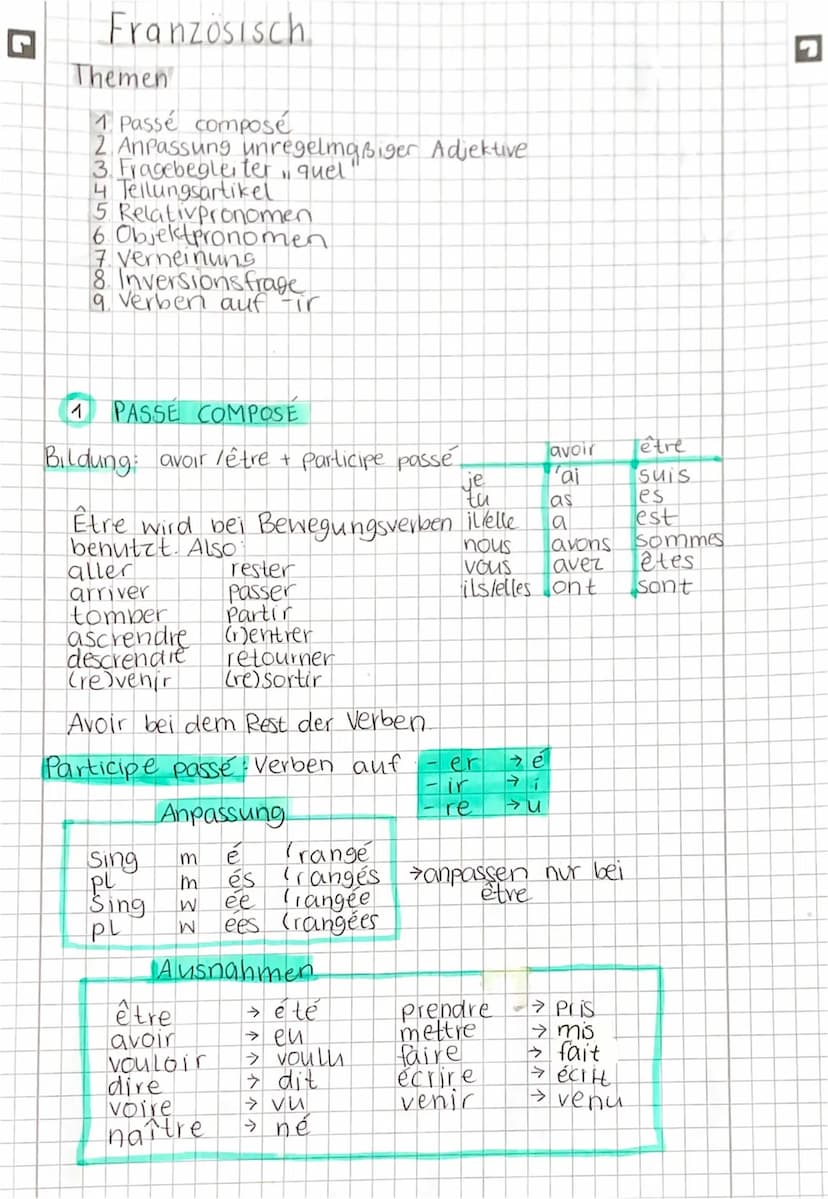 Französisch
Themen
1 Passé composé
2. Anpassung unregelmäßiger Adjektive
3. Fragebegleiter „quel"
4 Teilungsartikel
5 Relativpronomen
6 Objektpronomen
7. Verneinung
8. Inversionsfrage
9. Verben auf -ir
1 PASSÉ COMPOSÉ
Bildung: avoir /être + participe passé
avoir être
je 'ai suis
tu as es
il/elle a est
nous avons sommes
vous avez êtes
ils/elles ont sont
Être wird bei Bewegungsverben
benutzt. Also:
aller rester
arriver passer
tomber partir
ascrendre (r)entrer
descrendre retourner
(re)venir (re)sortir
Avoir bei dem Rest der Verben
Participe passé: Verben auf -er → é
-ir → i
-re → u
Anpassung
Sing m é (rangé
pl m és (rangés
Sing w ée (rangée
pl w ées (rangées
→anpassen nur bei
être
Ausnahmen
être → été prendre → pris
avoir → eu mettre → mis
vouloir → voulu faire → fait
dire → dit écrire → écrit
voire → vu venir → venu
naître → né